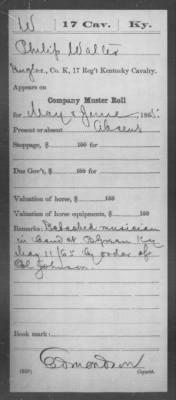 W 17 Cav. Ky.
Philip Walter
Bugler, Co. K, 17 Reg't Kentucky Cavalry.
Appears on
Company Muster Roll
for May & June, 1865.
Present or absent Absent
Stoppage, $ 100 for
Due Gov't, $ 100 for
Valuation of horse, $ 100
Valuation of horse equipments, $ 100
Remarks: Detached musician
in Band at Ky
May 11/65 by order of
Col Johnson.
Book mark:
Edmondson
(358) Copyist.